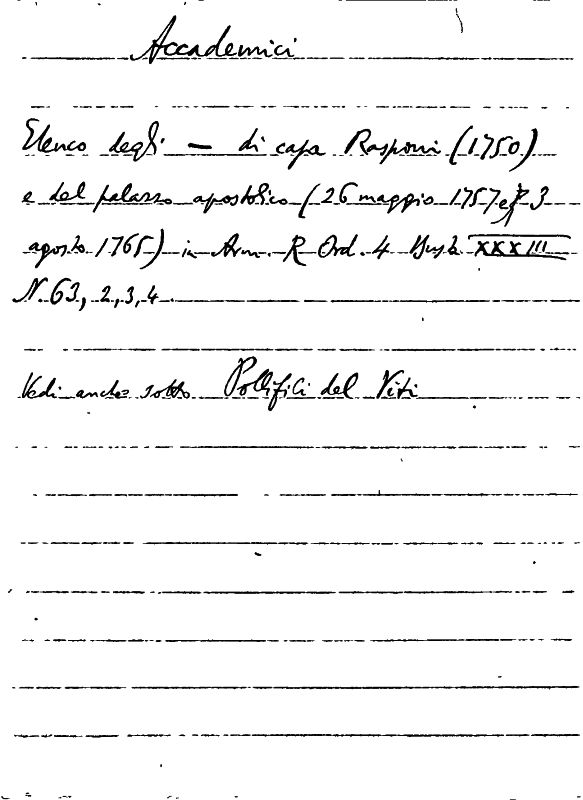 Accademici
Elenco degli — di casa Rasponi (1750)
e del palazzo apostolico (26 maggio 1757 e 3
agosto 1765) in Arm. R Ord. 4 Busta XXXIII
N. 63, 2, 3, 4.
Vedi anche sotto del Viti